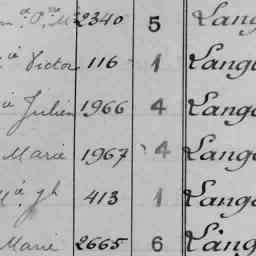 2340 5 Lang
Victor 116 1 Lang
Julien 1966 4 Lang
Marie 1967 4 Lang
Jh 413 1 Lang
Marie 2665 6 Lang